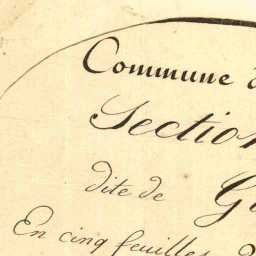 Commune
Section
dite de
En cinq feuilles